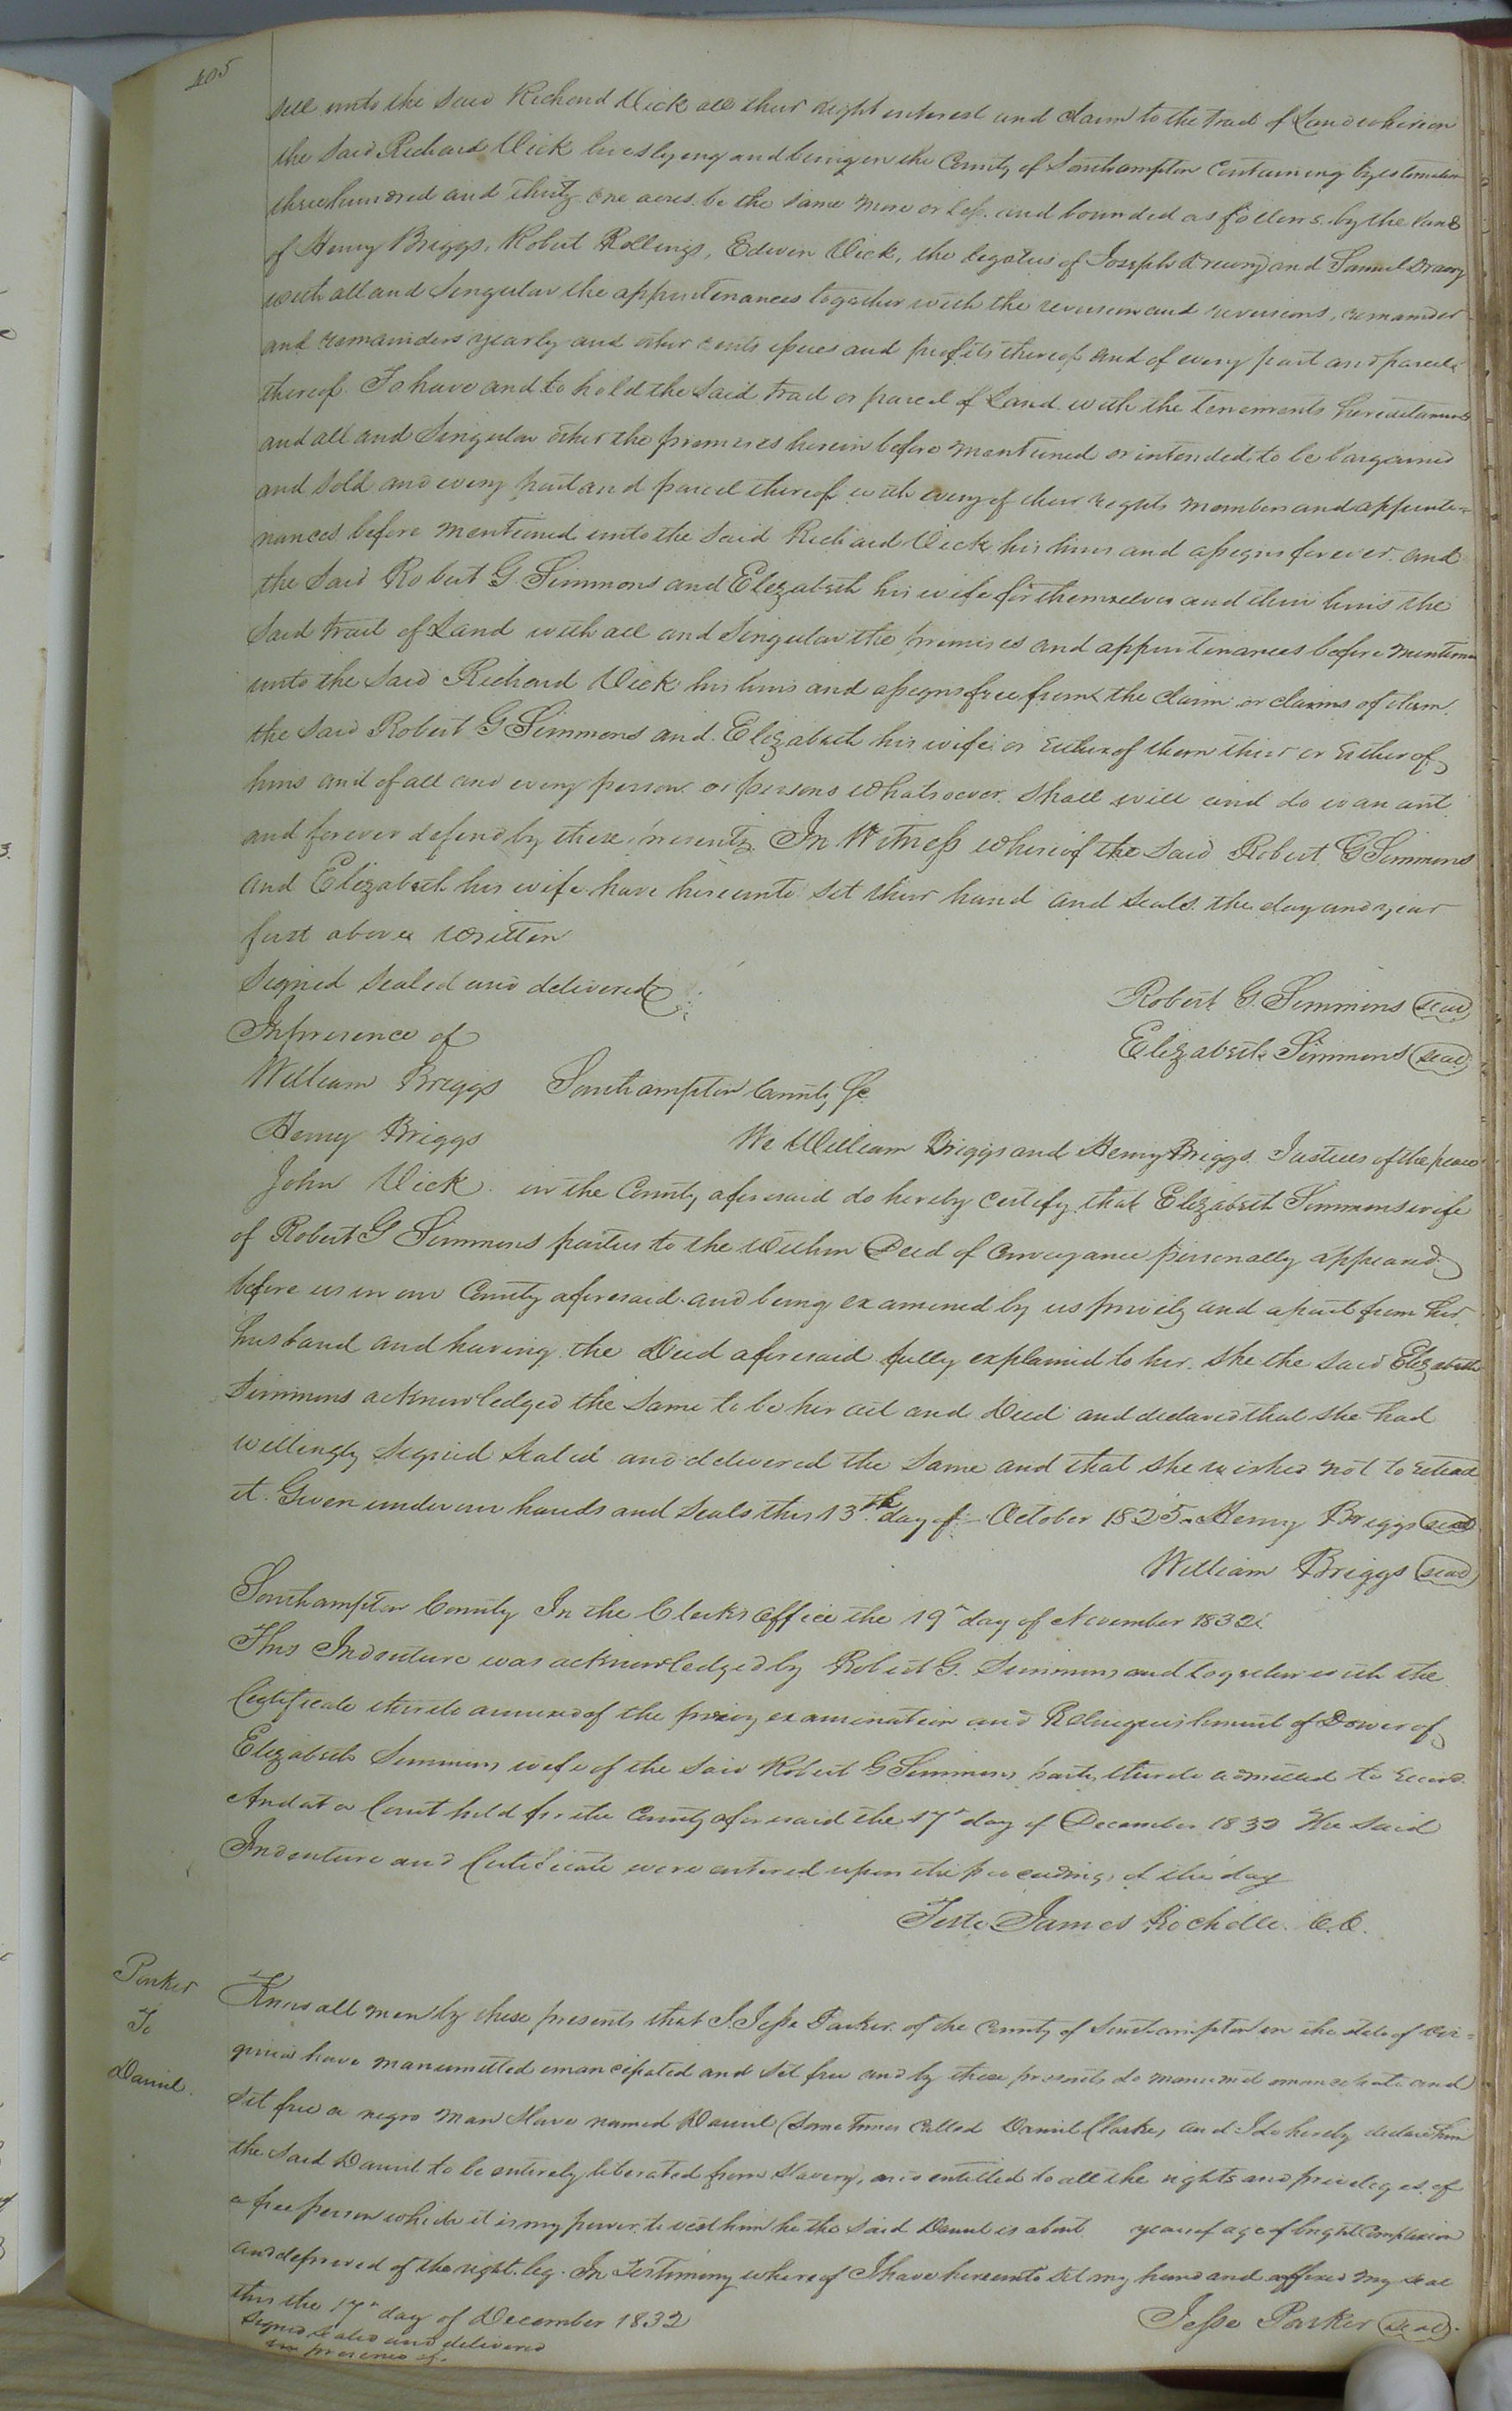 405
sell unto the said Richard Vick all their right interest and claim to the tract of Land whereon
the said Richard Vick lives lying and being in the County of Southampton Containing by estimation
three hundred and thirty one acres be the same more or less and bounded as follows by the land
of Henry Briggs, Robert Rollings, Edwin Vick, the legatus of Joseph Drewry and Samuel Drewry
with all and Singular the appurtenances together with the reversion and reversions, remainder
and remainders yearly and other rents issues and profits thereof and of every part and parcel
thereof To have and to hold the said tract or parcel of Land with the tenements hereditaments
and all and Singular other the premises herein before mentioned or intended to be bargained
and sold and every part and parcel thereof with every of their rights members and appurte=
nances before mentioned unto the said Richard Vick his heirs and assigns forever and
the said Robert G Simmons and Elizabeth his wife for themselves and their heirs the
said tract of Land with all and Singular the premises and appurtenances before mention
unto the said Richard Vick his heirs and assigns free from the claim or claims of them
the said Robert G Simmons and Elizabeth his wife or either of them their or either of
heirs and of all and every person or persons whatsoever shall will and do warrant
and forever defend by these presents In Witness whereof the said Robert G Simmons
and Elizabeth his wife have hereunto set their hand and seals the day and year
first above written
Signed sealed and delivered
In presence of
Robert G. Simmons seal
Elizabeth Simmons seal
William Briggs Southampton County Sc
Henry Briggs We William Briggs and Henry Briggs Justices of the peace
John Vick in the County aforesaid do hereby certify that Elizabeth Simmons wife
of Robert G Simmons parties to the within Deed of Conveyance personally appeared
before us in our County aforesaid and being examined by us privily and apart from her
husband and having the Deed aforesaid fully explained to her she the said Elizabeth
Simmons acknowledged the same to be her act and Deed and declared that she had
willingly signed sealed and delivered the same and that she wished not to retract
it. Given under our hands and seals this 13th day of October 1825 Henry Briggs seal
William Briggs seal
Southampton County In the Clerks office the 19th day of November 1832
This Indenture was acknowledged by Robert G. Simmons and together with the
Certificate thereto annexed of the privy examination and Relinquishment of Dower of
Elizabeth Simmons wife of the said Robert G Simmons party thereto admitted to record
And at a Court held for the County aforesaid the 17th day of December 1832 The said
Indenture and Certificate were entered upon the proceedings of the day
Teste James Rochelle C.C.
Parker
To
Daniel.
Know all men by these presents that I Jesse Parker of the County of Southampton in the state of Vir=
ginia have manumitted emancipated and set free and by these presents do manumit emancipate and
set free a negro man slave named Daniel (some times called Daniel Clarke, and I do hereby declare him
the said Daniel to be entirely liberated from slavery, and entitled to all the rights and privileges of
a free person which it is my power to vest him he the said Daniel is about years of age of bright Complexion
and deprived of the right leg. In Testimony whereof I have hereunto set my hand and affixed my seal
this the 17th day of December 1832
Jesse Parker seal
Signed sealed and delivered
in presence of